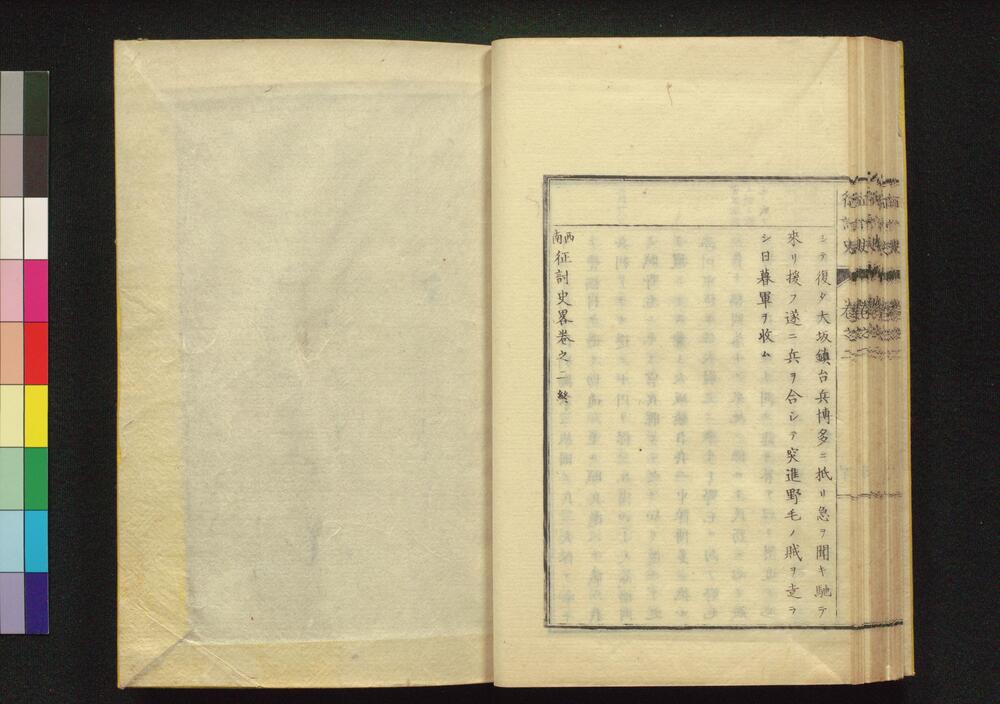 シテ復タ大坂鎮台兵博多ニ抵リ急ヲ聞キ馳テ
來リ援フ遂ニ兵ヲ合シテ突進野毛ノ賊ヲ走ラ
シ日暮軍ヲ收ム
西南征討史畧卷之二終